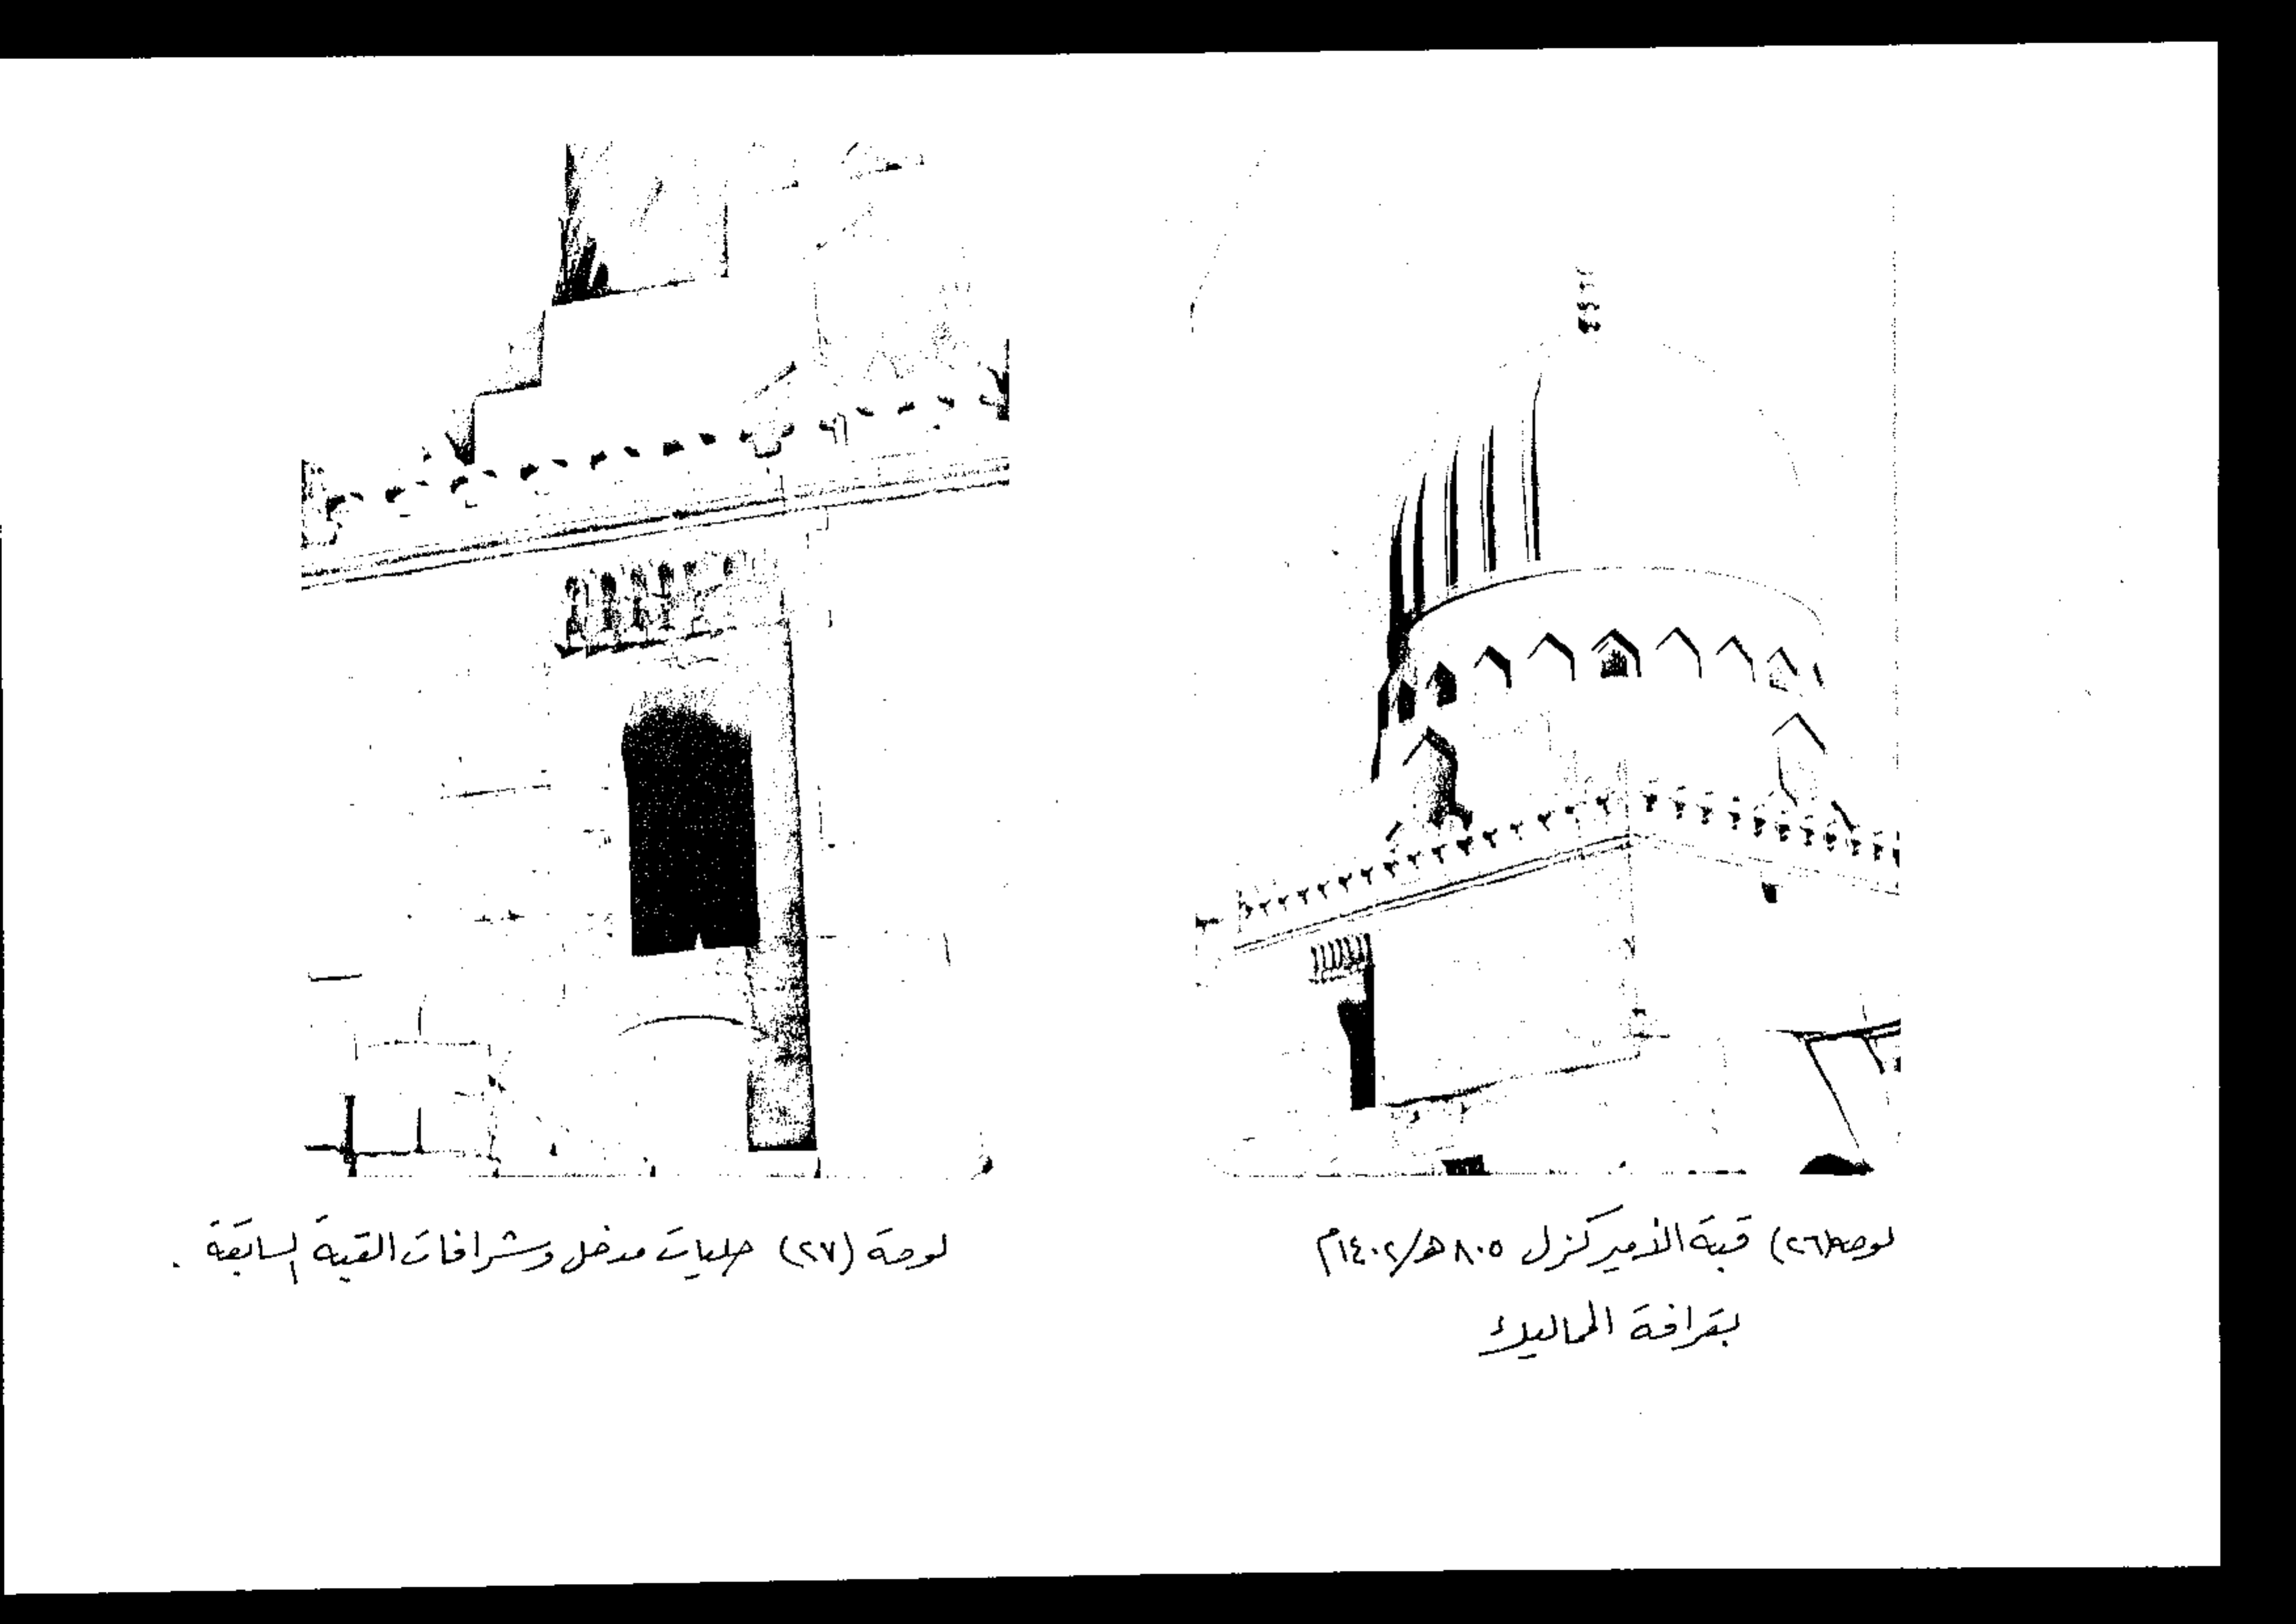 لوحة (٢٦) قبة الأمير كزل ٨٠٥هـ/١٤٠٢م
بقرافة المماليك
لوحة (٢٧) حليات مدخل وشرافات القبة السابقة .